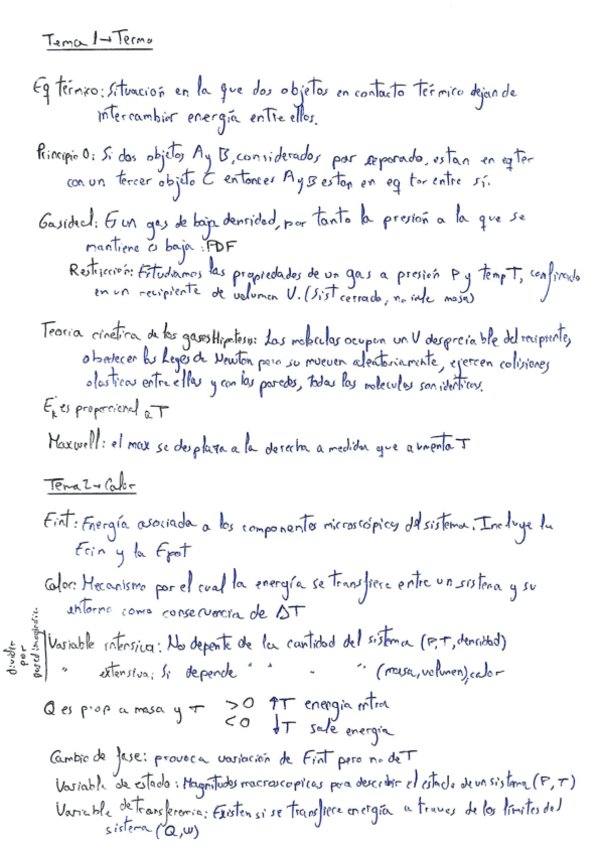 Tema 1 → Termo
Eq térmico: Situación en la que dos objetos en contacto térmico dejan de
intercambiar energía entre ellos.
Principio 0: Si dos objetos A y B, considerados por separado, estan en eq ter
con un tercer objeto C entonces A y B estan en eq ter entre sí.
Gas ideal: Es un gas de baja densidad, por tanto la presión a la que se
mantiene es baja. PDF
Restricción: Estudiamos las propiedades de un gas a presión P y temp T, confinado
en un recipiente de volumen V. (Sist cerrado, no sale masa)
Teoria cinética de los gases Hipotesis: Las moleculas ocupan un V despreciable del recipiente,
obedecen las Leyes de Newton pero se mueven aleatoriamente, ejercen colisiones
elasticas entre ellas y con las paredes, todas las moleculas son identicas.
Ek es proporcional a T
Maxwell: el max se desplaza a la derecha a medida que aumenta T
Tema 2 → Calor
Eint: Energía asociada a los componentes microscópicos del sistema. Incluye la
Ecin y la Epot
Calor: Mecanismo por el cual la energía se transfiere entre un sistema y su
entorno como consecuencia de ΔT
dividir por pared imaginaria
Variable intensiva: No depente de la cantidad del sistema (P, T, densidad)
" extensiva: Si depende " " " (masa, volumen), calor
Q es prop a masa y T >0 ↑T energia entra
<0 ↓T sale energia
Cambio de fase: provoca variación de Eint pero no de T
Variable de estado: Magnitudes macroscopicas para describir el estado de un sistema (P, T)
Variable de transferencia: Existen si se transfiere energía a traves de los límites del
sistema (Q, W)